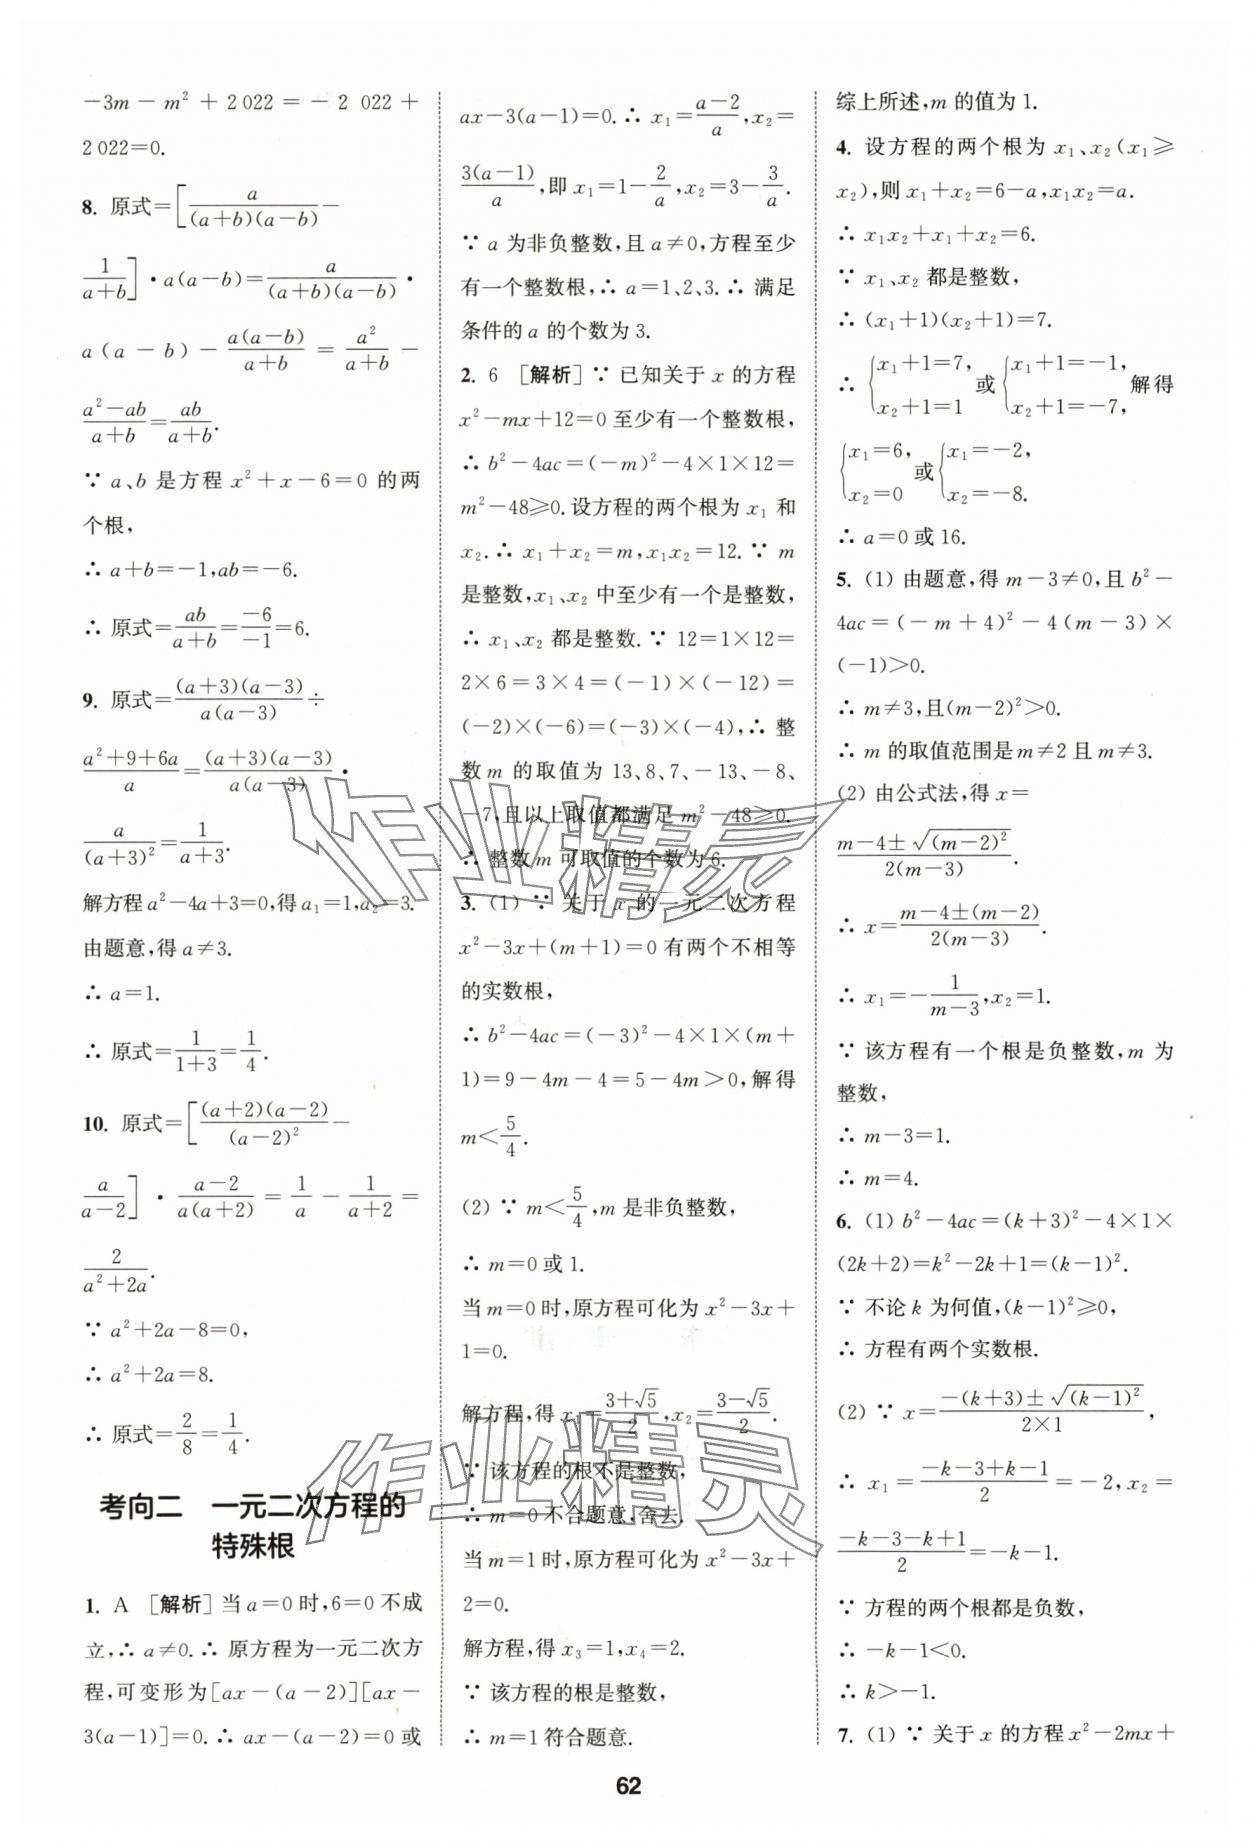 −3m−m²+2 022=−2 022+
2 022=0.
8. 原式=[a/((a+b)(a−b))−
1/(a+b)]·a(a−b)=a/((a+b)(a−b))·
a(a−b)−a(a−b)/(a+b)=a²/(a+b)−
(a²−ab)/(a+b)=ab/(a+b).
∵ a、b 是方程 x²+x−6=0 的两
个根,
∴ a+b=−1,ab=−6.
∴ 原式=ab/(a+b)=−6/−1=6.
9. 原式=(a+3)(a−3)/(a(a−3))÷
(a²+9+6a)/a=(a+3)(a−3)/(a(a−3))·
a/(a+3)²=1/(a+3).
解方程 a²−4a+3=0,得 a₁=1,a₂=3.
由题意,得 a≠3.
∴ a=1.
∴ 原式=1/(1+3)=1/4.
10. 原式=[(a+2)(a−2)/(a−2)²−
a/(a−2)]·(a−2)/(a(a+2))=1/a−1/(a+2)=
2/(a²+2a).
∵ a²+2a−8=0,
∴ a²+2a=8.
∴ 原式=2/8=1/4.
考向二 一元二次方程的
特殊根
1. A [解析]当 a=0 时,6=0 不成
立,∴ a≠0.∴ 原方程为一元二次方
程,可变形为[ax−(a−2)][ax−
3(a−1)]=0.∴ ax−(a−2)=0 或
ax−3(a−1)=0.∴ x₁=(a−2)/a,x₂=
3(a−1)/a,即 x₁=1−2/a,x₂=3−3/a.
∵ a 为非负整数,且 a≠0,方程至少
有一个整数根,∴ a=1、2、3.∴ 满足
条件的 a 的个数为 3.
2. 6 [解析]∵ 已知关于 x 的方程
x²−mx+12=0 至少有一个整数根,
∴ b²−4ac=(−m)²−4×1×12=
m²−48≥0.设方程的两个根为 x₁ 和
x₂.∴ x₁+x₂=m,x₁x₂=12.∵ m
是整数,x₁、x₂ 中至少有一个是整数,
∴ x₁、x₂ 都是整数.∵ 12=1×12=
2×6=3×4=(−1)×(−12)=
(−2)×(−6)=(−3)×(−4),∴ 整
数 m 的取值为 13、8、7、−13、−8、
−7,且以上取值都满足 m²−48≥0.
∴ 整数 m 可取值的个数为 6.
3. (1) ∵ 关于 x 的一元二次方程
x²−3x+(m+1)=0 有两个不相等
的实数根,
∴ b²−4ac=(−3)²−4×1×(m+
1)=9−4m−4=5−4m>0,解得
m<5/4.
(2) ∵ m<5/4,m 是非负整数,
∴ m=0 或 1.
当 m=0 时,原方程可化为 x²−3x+
1=0.
解方程,得 x₁=(3+√5)/2,x₂=(3−√5)/2.
∵ 该方程的根不是整数,
∴ m=0 不合题意,舍去.
当 m=1 时,原方程可化为 x²−3x+
2=0.
解方程,得 x₃=1,x₄=2.
∵ 该方程的根是整数,
∴ m=1 符合题意.
综上所述,m 的值为 1.
4. 设方程的两个根为 x₁、x₂(x₁≥
x₂),则 x₁+x₂=6−a,x₁x₂=a.
∴ x₁x₂+x₁+x₂=6.
∵ x₁、x₂ 都是整数,
∴ (x₁+1)(x₂+1)=7.
∴ {x₁+1=7, x₂+1=1 或 {x₁+1=−1, x₂+1=−7, 解得
{x₁=6, x₂=0 或 {x₁=−2, x₂=−8.
∴ a=0 或 16.
5. (1) 由题意,得 m−3≠0,且 b²−
4ac=(−m+4)²−4(m−3)×
(−1)>0.
∴ m≠3,且(m−2)²>0.
∴ m 的取值范围是 m≠2 且 m≠3.
(2) 由公式法,得 x=
(m−4±√(m−2)²)/(2(m−3)).
∴ x=(m−4±(m−2))/(2(m−3)).
∴ x₁=−1/(m−3),x₂=1.
∵ 该方程有一个根是负整数,m 为
整数,
∴ m−3=1.
∴ m=4.
6. (1) b²−4ac=(k+3)²−4×1×
(2k+2)=k²−2k+1=(k−1)².
∵ 不论 k 为何值,(k−1)²≥0,
∴ 方程有两个实数根.
(2) ∵ x=(−(k+3)±√(k−1)²)/(2×1),
∴ x₁=(−k−3+k−1)/2=−2,x₂=
(−k−3−k+1)/2=−k−1.
∵ 方程的两个根都是负数,
∴ −k−1<0.
∴ k>−1.
7. (1) ∵ 关于 x 的方程 x²−2mx+
62
作业精灵
作业精灵